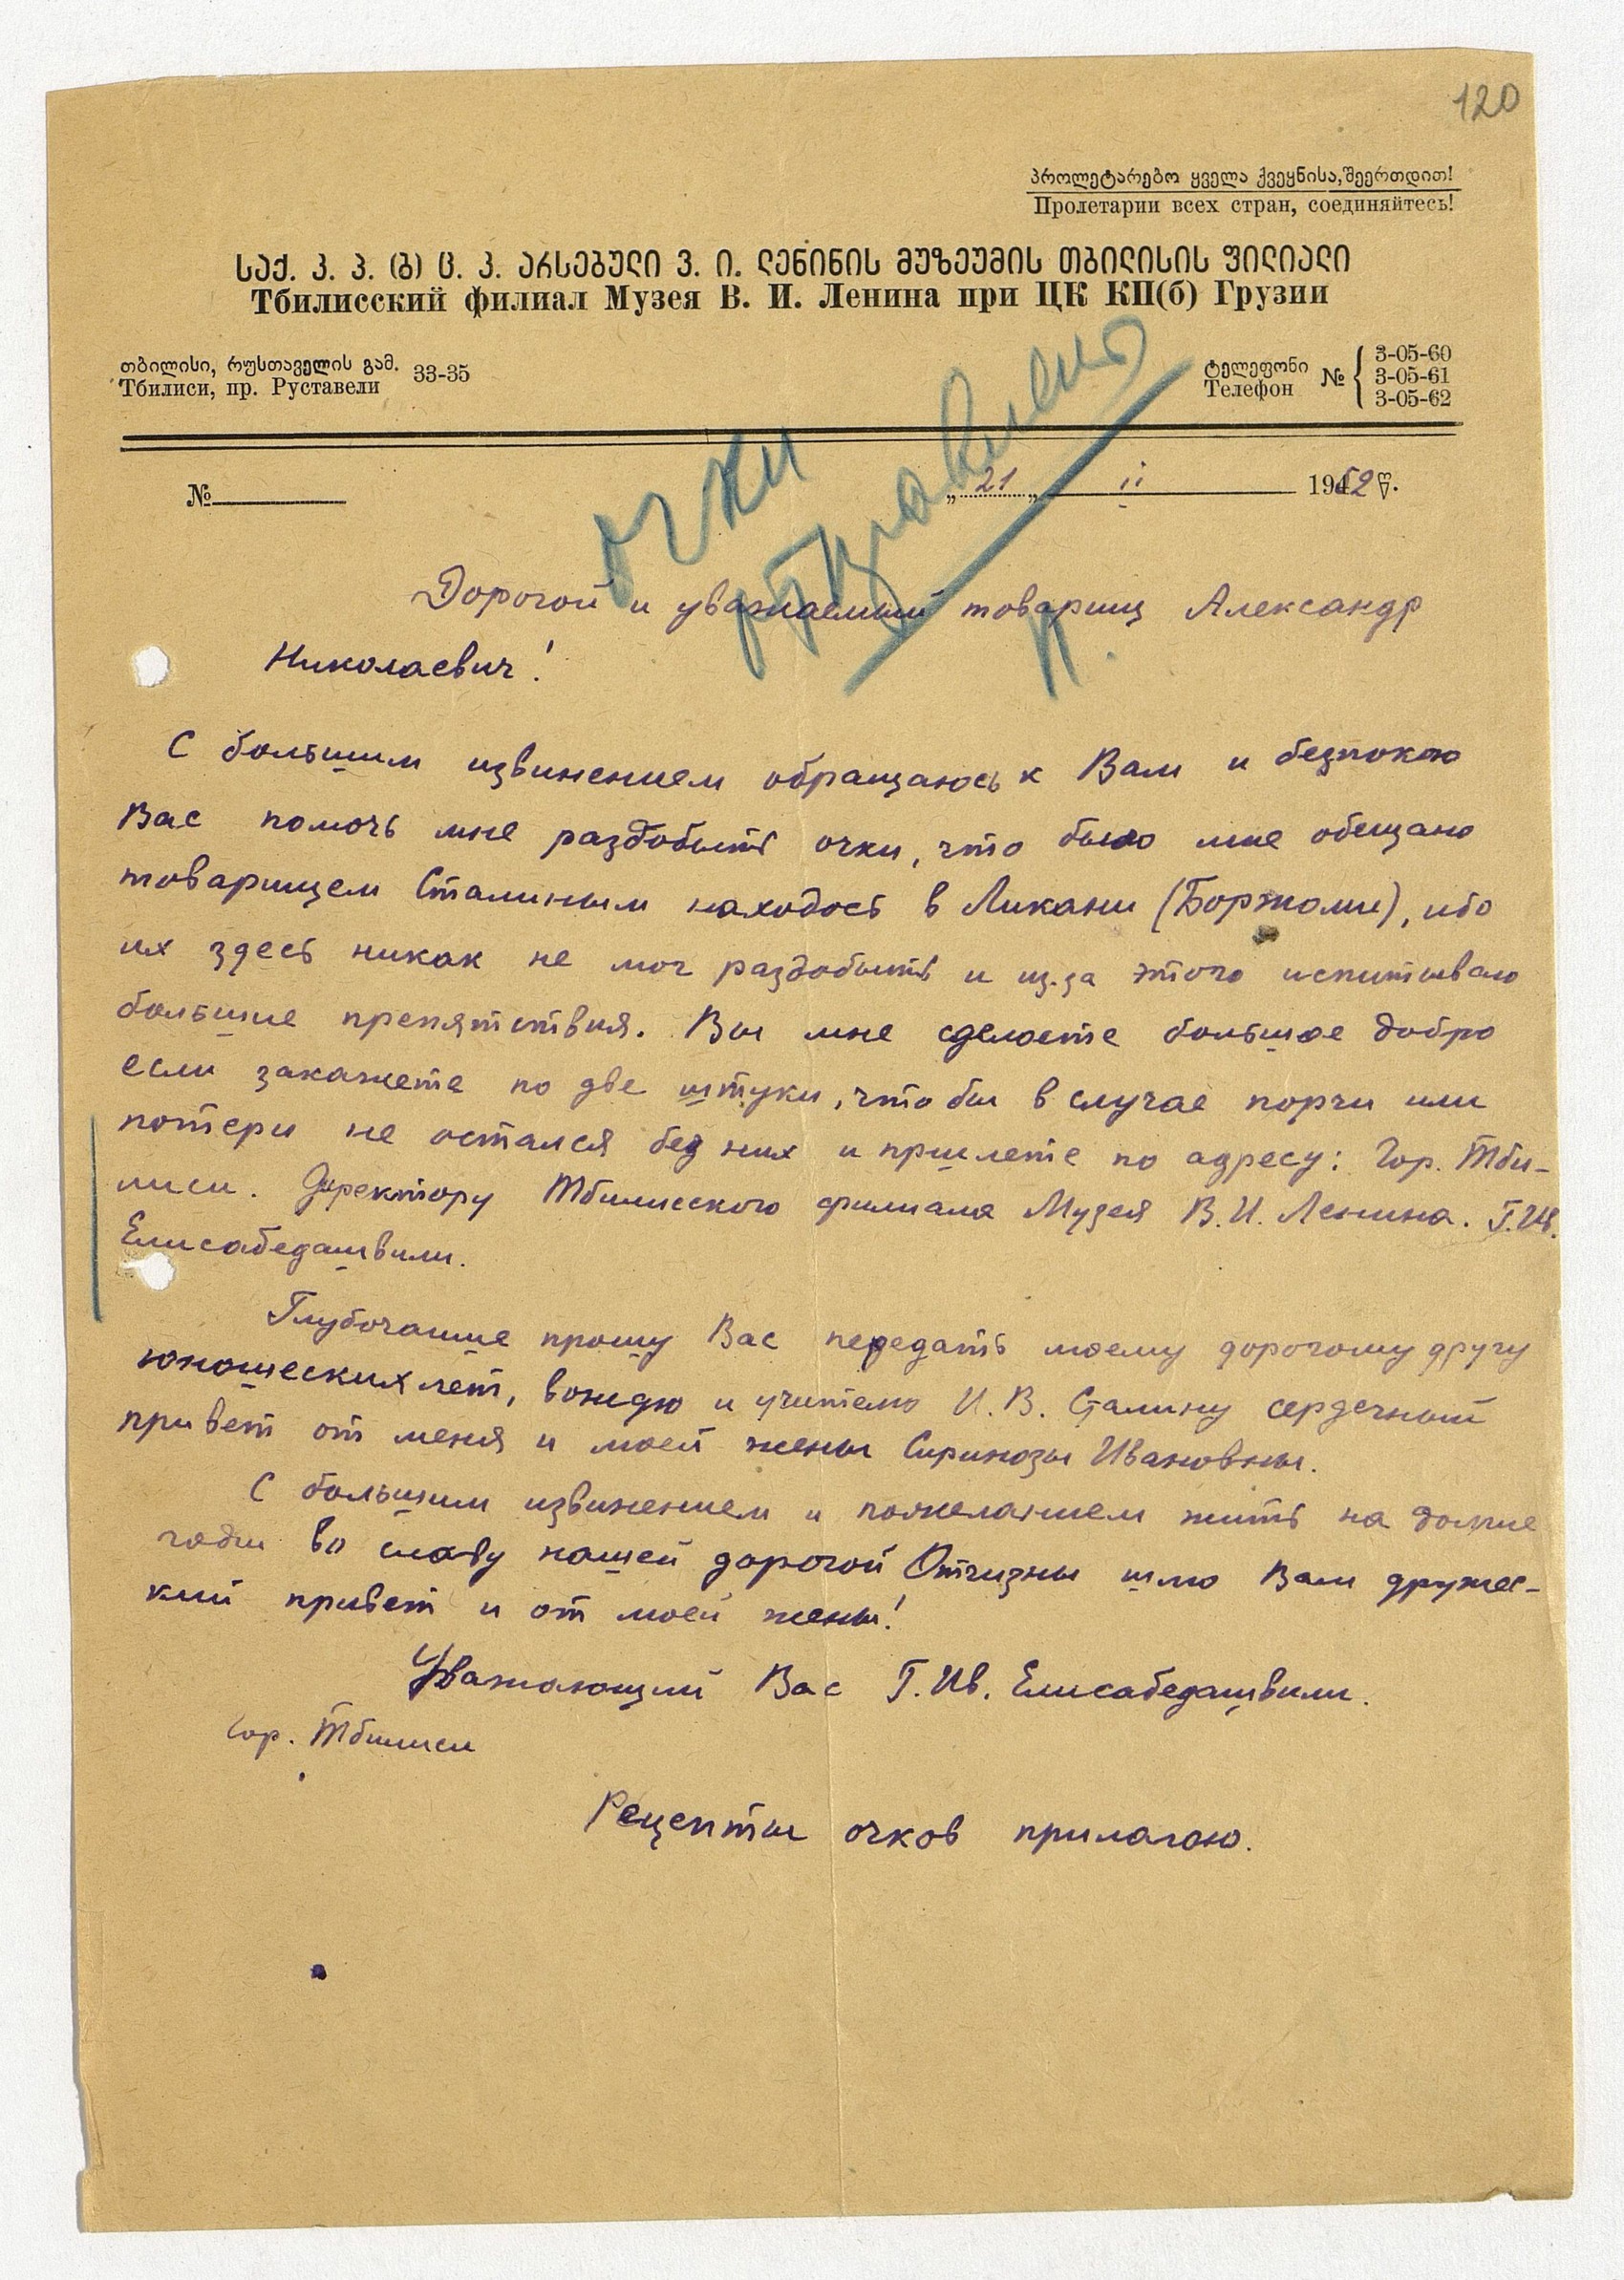 120
პროლეტარებო ყველა ქვეყნისა, შეერთდით!
Пролетарии всех стран, соединяйтесь!
საქ. კ. პ. (ბ) ც. კ. არსებული ვ. ი. ლენინის მუზეუმის თბილისის ფილიალი
Тбилисский филиал Музея В. И. Ленина при ЦК КП(б) Грузии
თბილისი, რუსთაველის გამ. 33-35
Тбилиси, пр. Руставели
ტელეფონი
Телефон № 3-05-60
3-05-61
3-05-62
очки
отправлено
№ „21„ II 1952 წ.
Дорогой и уважаемый товарищ Александр
Николаевич!
С большим извинением обращаюсь к Вам и безпокою
Вас помочь мне раздобыть очки, что было мне обещано
товарищем Сталиным находось в Ликани (Боржоми), ибо
их здесь никак не мог раздобыть и из-за этого испитываю
большие препятствия. Вы мне сделаете большое добро
если закажете по две штуки, чтобы в случае порчи или
потери не остался без них и пришлете по адресу: Гор. Тби-
лиси. Директору Тбилисского филиала Музея В. И. Ленина. Г. Ив.
Елисабедашвили.
Глубочайше прошу Вас передать моему дорогому другу
юношеских лет, вождю и учителю И. В. Сталину сердечный
привет от меня и моей жены Сиринозы Ивановны.
С большим извинением и пожеланием жить на долгие
годы во славу нашей дорогой Отчизны шлю Вам дружес-
кий привет и от моей жены!
Уважающий Вас Г. Ив. Елисабедашвили.
Гор. Тбилиси
Рецепты очков прилагаю.